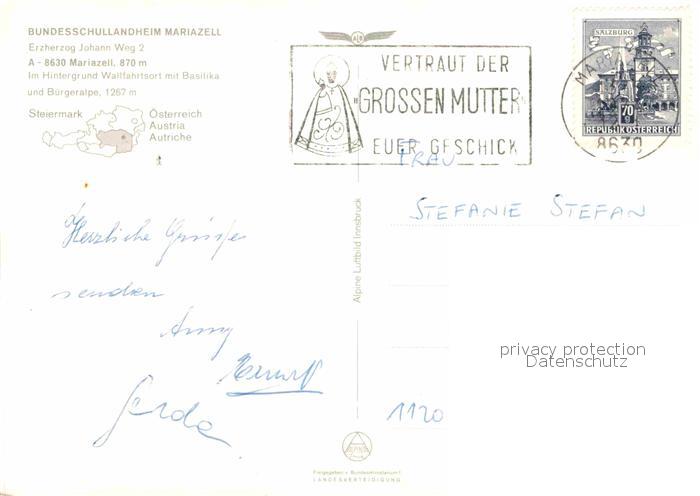 BUNDESSCHULLANDHEIM MARIAZELL
Erzherzog Johann Weg 2
A - 8630 Mariazell, 870 m
Im Hintergrund Wallfahrtsort mit Basilika
und Bürgeralpe, 1267 m
Steiermark
Österreich
Austria
Autriche
VERTRAUT DER
"GROSSEN MUTTER"
EUER GESCHICK
SALZBURG
70 g
REPUBLIK ÖSTERREICH
8630
FRAU
STEFANIE STEFAN
Herzliche Grüsse
senden
Anny
Gerda
1120
Alpine Luftbild Innsbruck
privacy protection
Datenschutz
ALPINE
Freigegeben v. Bundesministerium f.
LANDESVERTEIDIGUNG